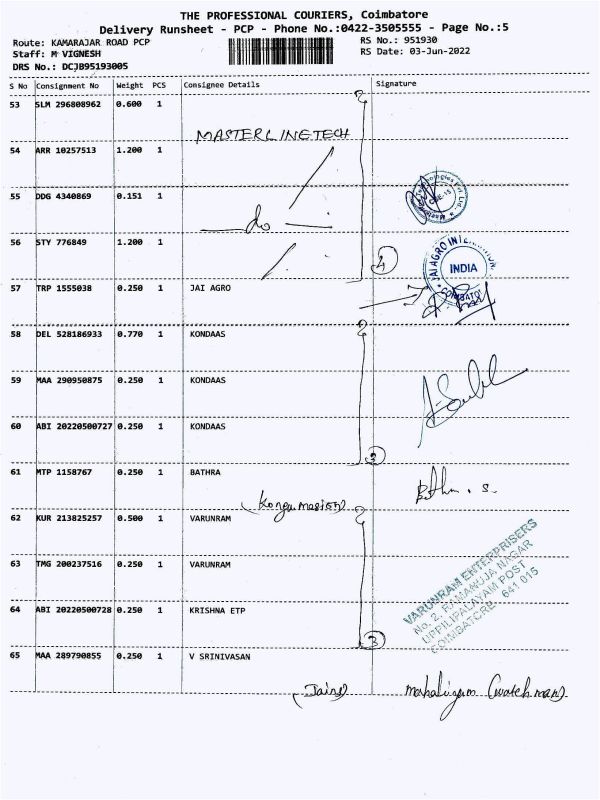 THE PROFESSIONAL COURIERS, Coimbatore
Delivery Runsheet - PCP - Phone No.:0422-3505555 - Page No.:5
Route: KAMARAJAR ROAD PCP
RS No.: 951930
Staff: M VIGNESH
RS Date: 03-Jun-2022
DRS No.: DCJB95193005
S No Consignment No Weight PCS Consignee Details Signature
53 SLM 296808962 0.600 1
MASTERLINETECH
54 ARR 10257513 1.200 1
55 DDG 4340869 0.151 1
do
56 STY 776849 1.200 1
4
JAI AGRO
INDIA
COIMBATORE
57 TRP 1555038 0.250 1 JAI AGRO
58 DEL 528186933 0.770 1 KONDAAS
59 MAA 290950875 0.250 1 KONDAAS
60 ABI 20220500727 0.250 1 KONDAAS
3
61 MTP 1158767 0.250 1 BATHRA
62 KUR 213825257 0.500 1 VARUNRAM
63 TMG 200237516 0.250 1 VARUNRAM
64 ABI 20220500728 0.250 1 KRISHNA ETP
3
VARUNRAM ENTERPRISERS
No. 2, RAMANUJA NAGAR
UPPILIPALAYAM POST
COIMBATORE 641 015
65 MAA 289790855 0.250 1 V SRINIVASAN
(Jains)
(watch man)